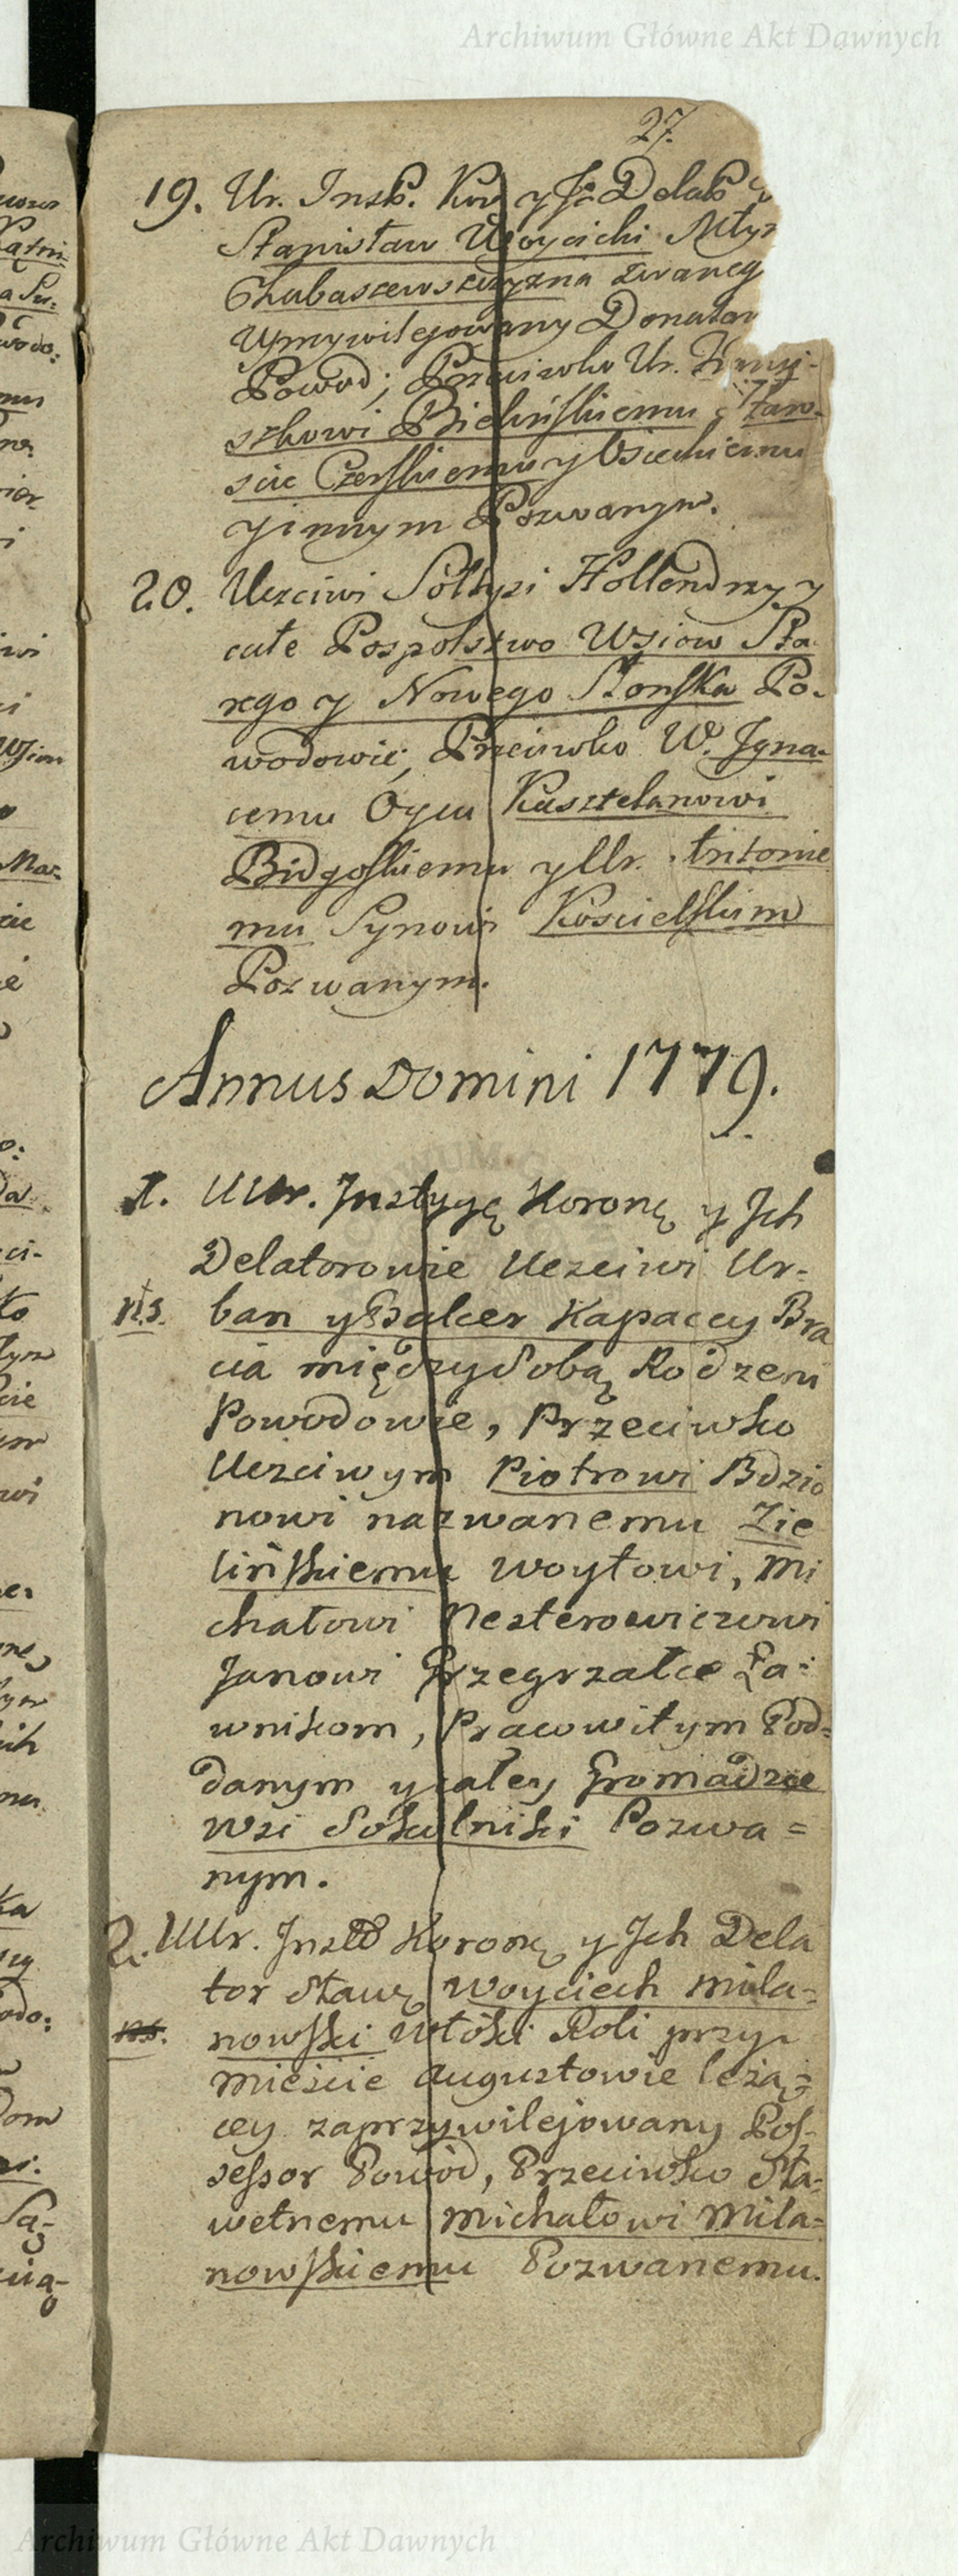 Archiwum Główne Akt Dawnych
27.
19. Ur. Inst. Kor y Je Delat
Stanisław Woycicki Młyn
Chabaszewszczyzna zwaneg
Uprzywilejowany Donatar
Powod; Przeciwko Ur. Franci-
szkowi Bielińskiemu Staro-
scie Czerskiemu y Osieckiemu
y innym Pozwanym.
20. Uczciwi Sołtysi Hollendrzy y
całe Pospolstwo Wsiow Sta
rego y Nowego Słonska Po-
wodowie, Przeciwko W. Igna-
cemu Oycu Kasztelanowi
Bidgoskiemu y Ur. Antonie
mu Synowi Koscielskim
Pozwanym.
Annus Domini 1779.
1. UUr. Instygę Koronę y Ich
Delatorowie Uczciwi Ur-
ns. ban y Balcer Kapaccy Bra
cia między Sobą Rodzeni
Powodowie, Przeciwko
Uczciwym Piotrowi Bdzio
nowi nazwanemu Zie
lińskiemu Woytowi, Mi
chałowi Nesterowiczowi
Janowi Przegrzałce Ła-
wnikom, Pracowitym Pod=
danym y całey Gromadzie
wsi Sokolniki Pozwa=
nym.
2. UUr. Inst Koronę y Ich Dela
tor Sławę Woyciech Mila=
ns. nowski Włóki Roli przy
Mieście Augustowie leżą=
cey zaprzywilejowany Pos-
sessor Powód, Przeciwko Sła-
wetnemu Michałowi Mila=
nowskiemu Pozwanemu.
Archiwum Główne Akt Dawnych